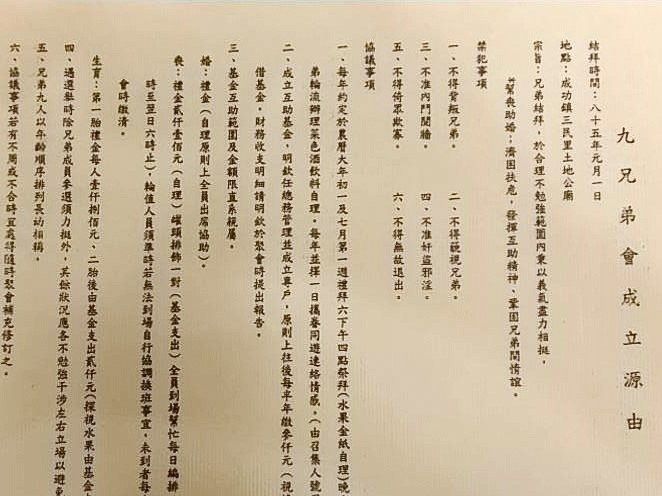 九兄弟會成立源由
結拜時間：八十五年元月一日
地點：成功鎮三民里土地公廟
宗旨：兄弟結拜，於合理不勉強範圍內秉以義氣盡力相挺，
並喪助婚；濟困扶危，發揮互助精神、鞏固兄弟間情誼。
禁犯事項
一、不得背叛兄弟。 二、不得藐視兄弟。
三、不准內鬥鬩牆。 四、不准奸盜邪淫。
五、不得倚眾欺寡。 六、不得無故退出。
協議事項
一、每年約定於農曆大年初一及七月第一週禮拜六下午四點祭拜（水果金紙自理）晚
弟輪流辦理菜色酒飲料自理。每年並擇一日攜眷同遊連絡情感。（由召集人號
二、成立互助基金，明欽任總務管理並成立專戶，原則上往後每半年繳參仟元（視
借基金。財務收支明細請明欽於聚會時提出報告。
三、基金互助範圍及金額限直系親屬。
婚：禮金（自理原則上全員出席協助）。
喪：禮金貳仟壹佰元（自理）罐頭排飾一對（基金支出）全員到場幫忙每日編排
時至翌日六時止），輪值人員須準時若無法到場自行協調換班事宜，未到者每
會時繳清。
生育：第一胎禮金每人壹仟捌佰元、二胎後由基金支出貳仟元（探視水果由基金
四、遇選舉時除兄弟成員參選須力挺外，其餘狀況應各不勉強干涉左右立場以避
五、兄弟九人以年齡順序排列長幼相稱。
六、協議事項若有不周或不合時宜處得隨時聚會補充修訂之。